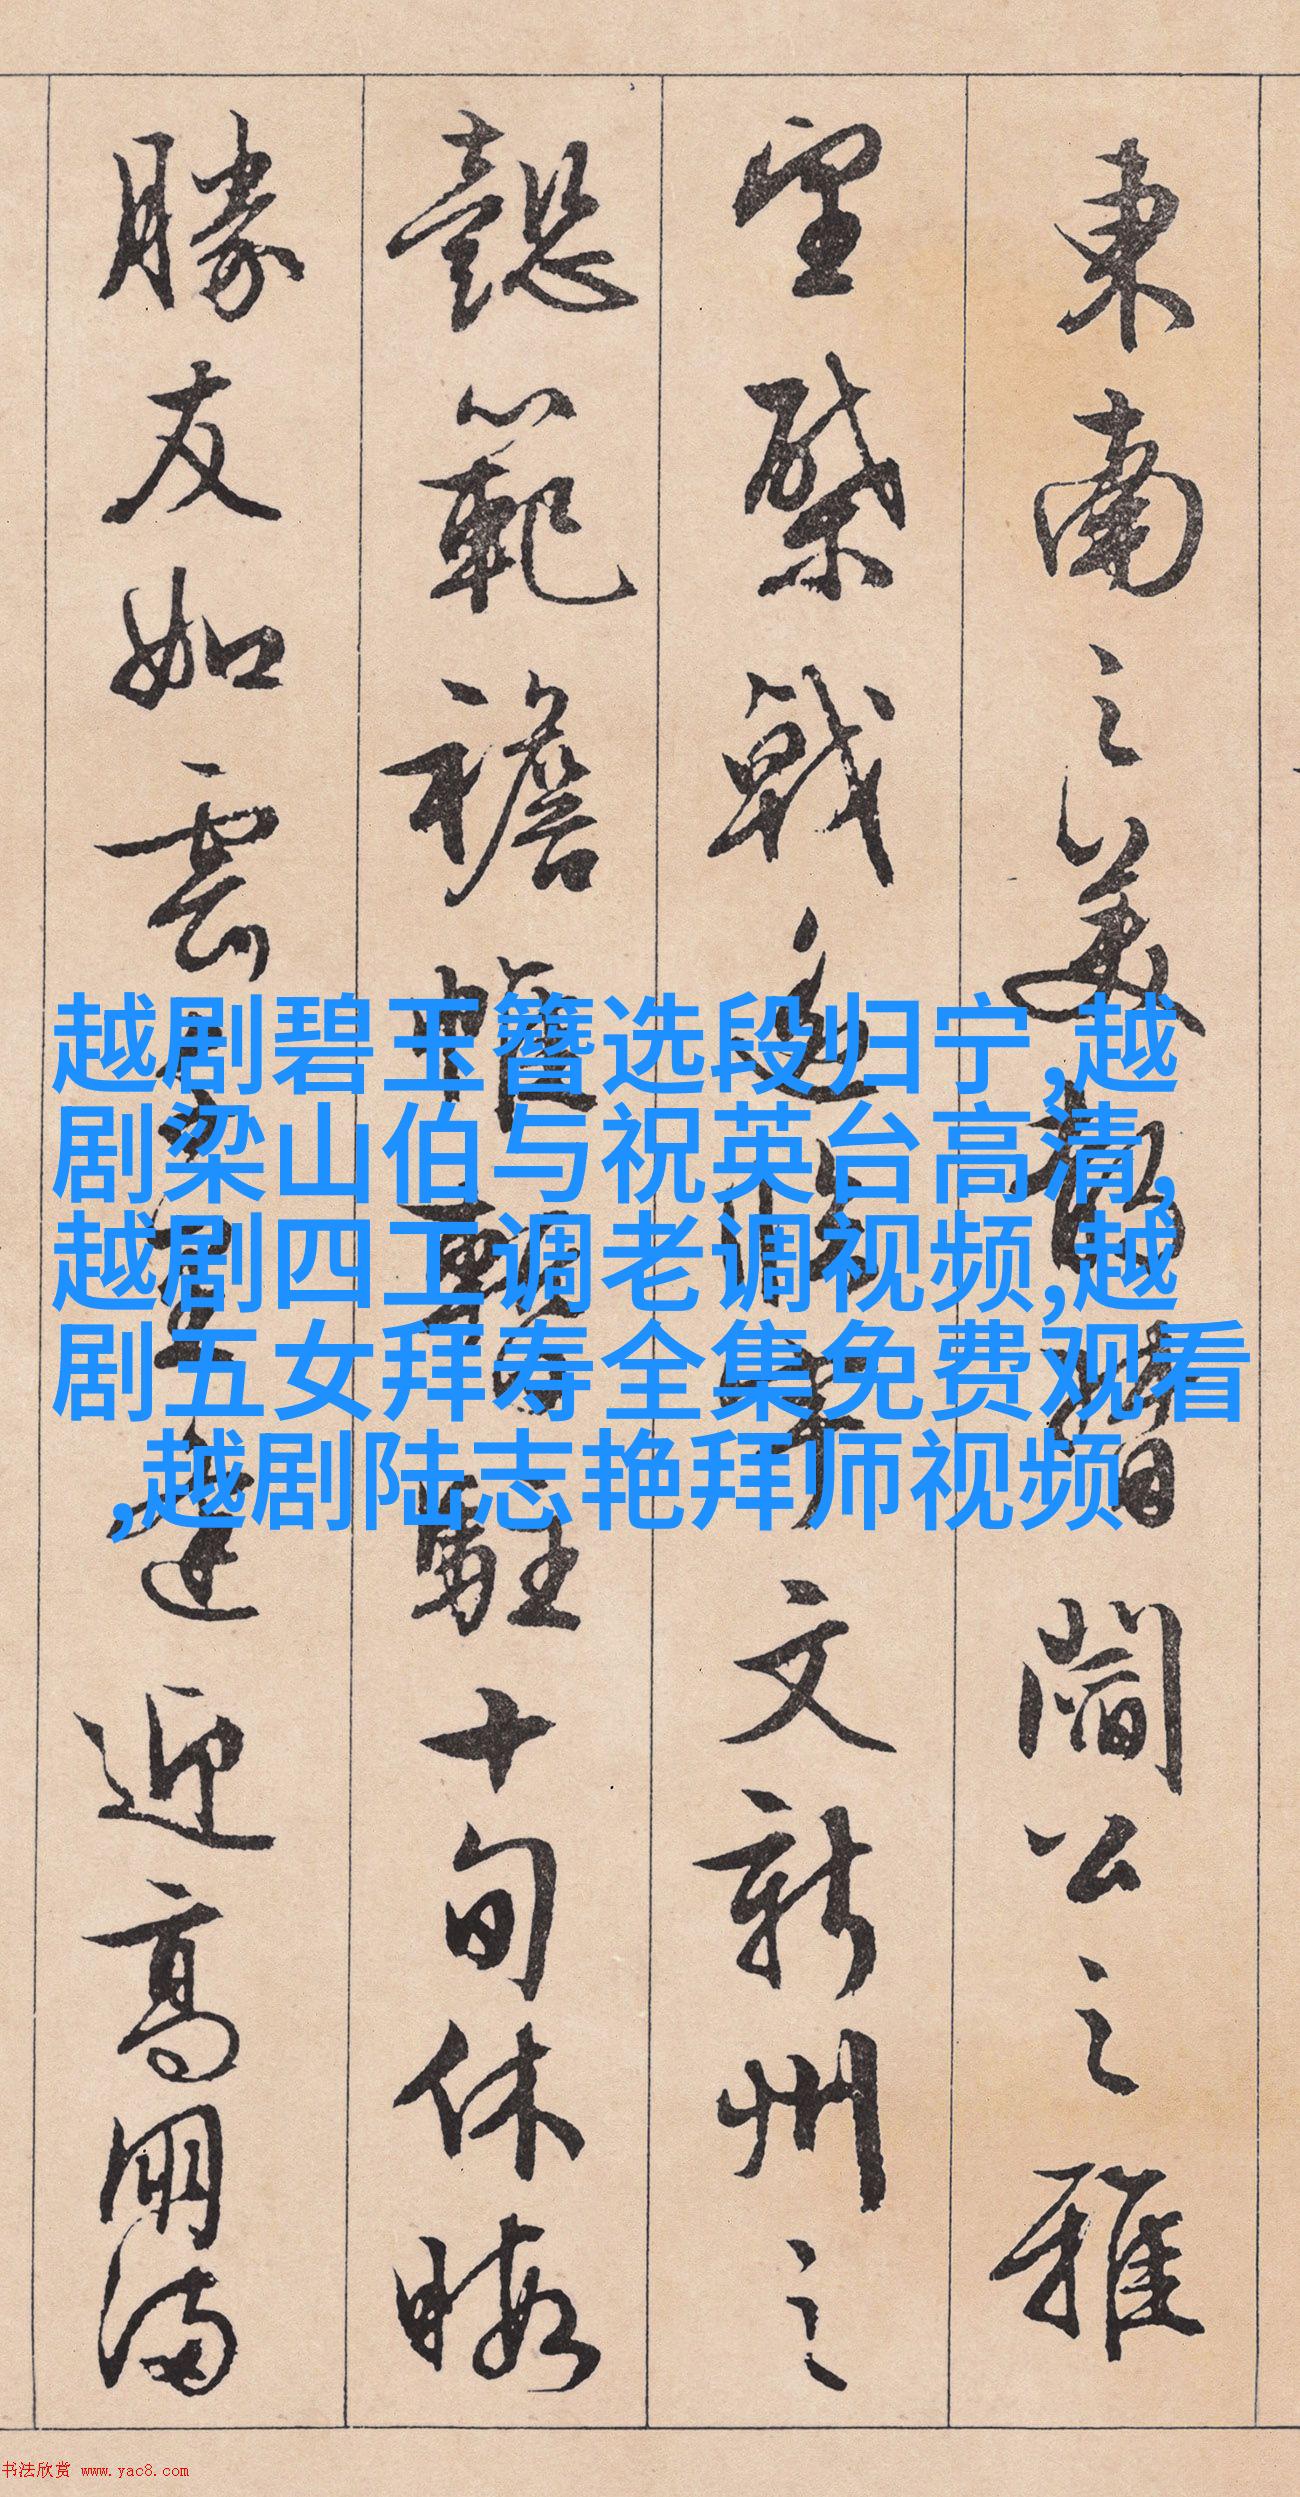 東南之美都督閻公之雅
望棨戟遙臨宇文新州之
懿範襜帷暫駐十旬休暇
勝友如雲千里逢迎高朋滿
越剧碧玉簪选段归宁,越
剧梁山伯与祝英台高清,
越剧四工调老调视频,越
剧五女拜寿全集免费观看
,越剧陆志艳拜师视频
书法欣赏 www.yac8.com